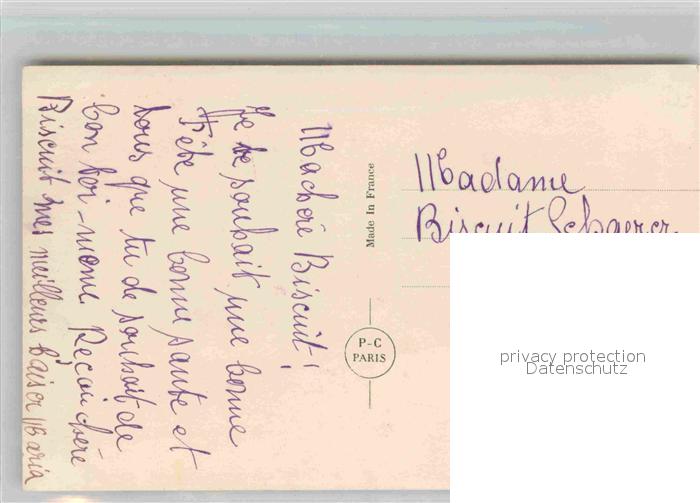 Ma chere Biscuit!
Je te souhait une bonne
Fête une bonne sante et
tous que tu de souhait de
bon toi-mome. Reçoi chère
Biscuit mes meilleurs baiser Maria
Made In France
P-C
PARIS
Madame
Biscuit
privacy protection
Datenschutz